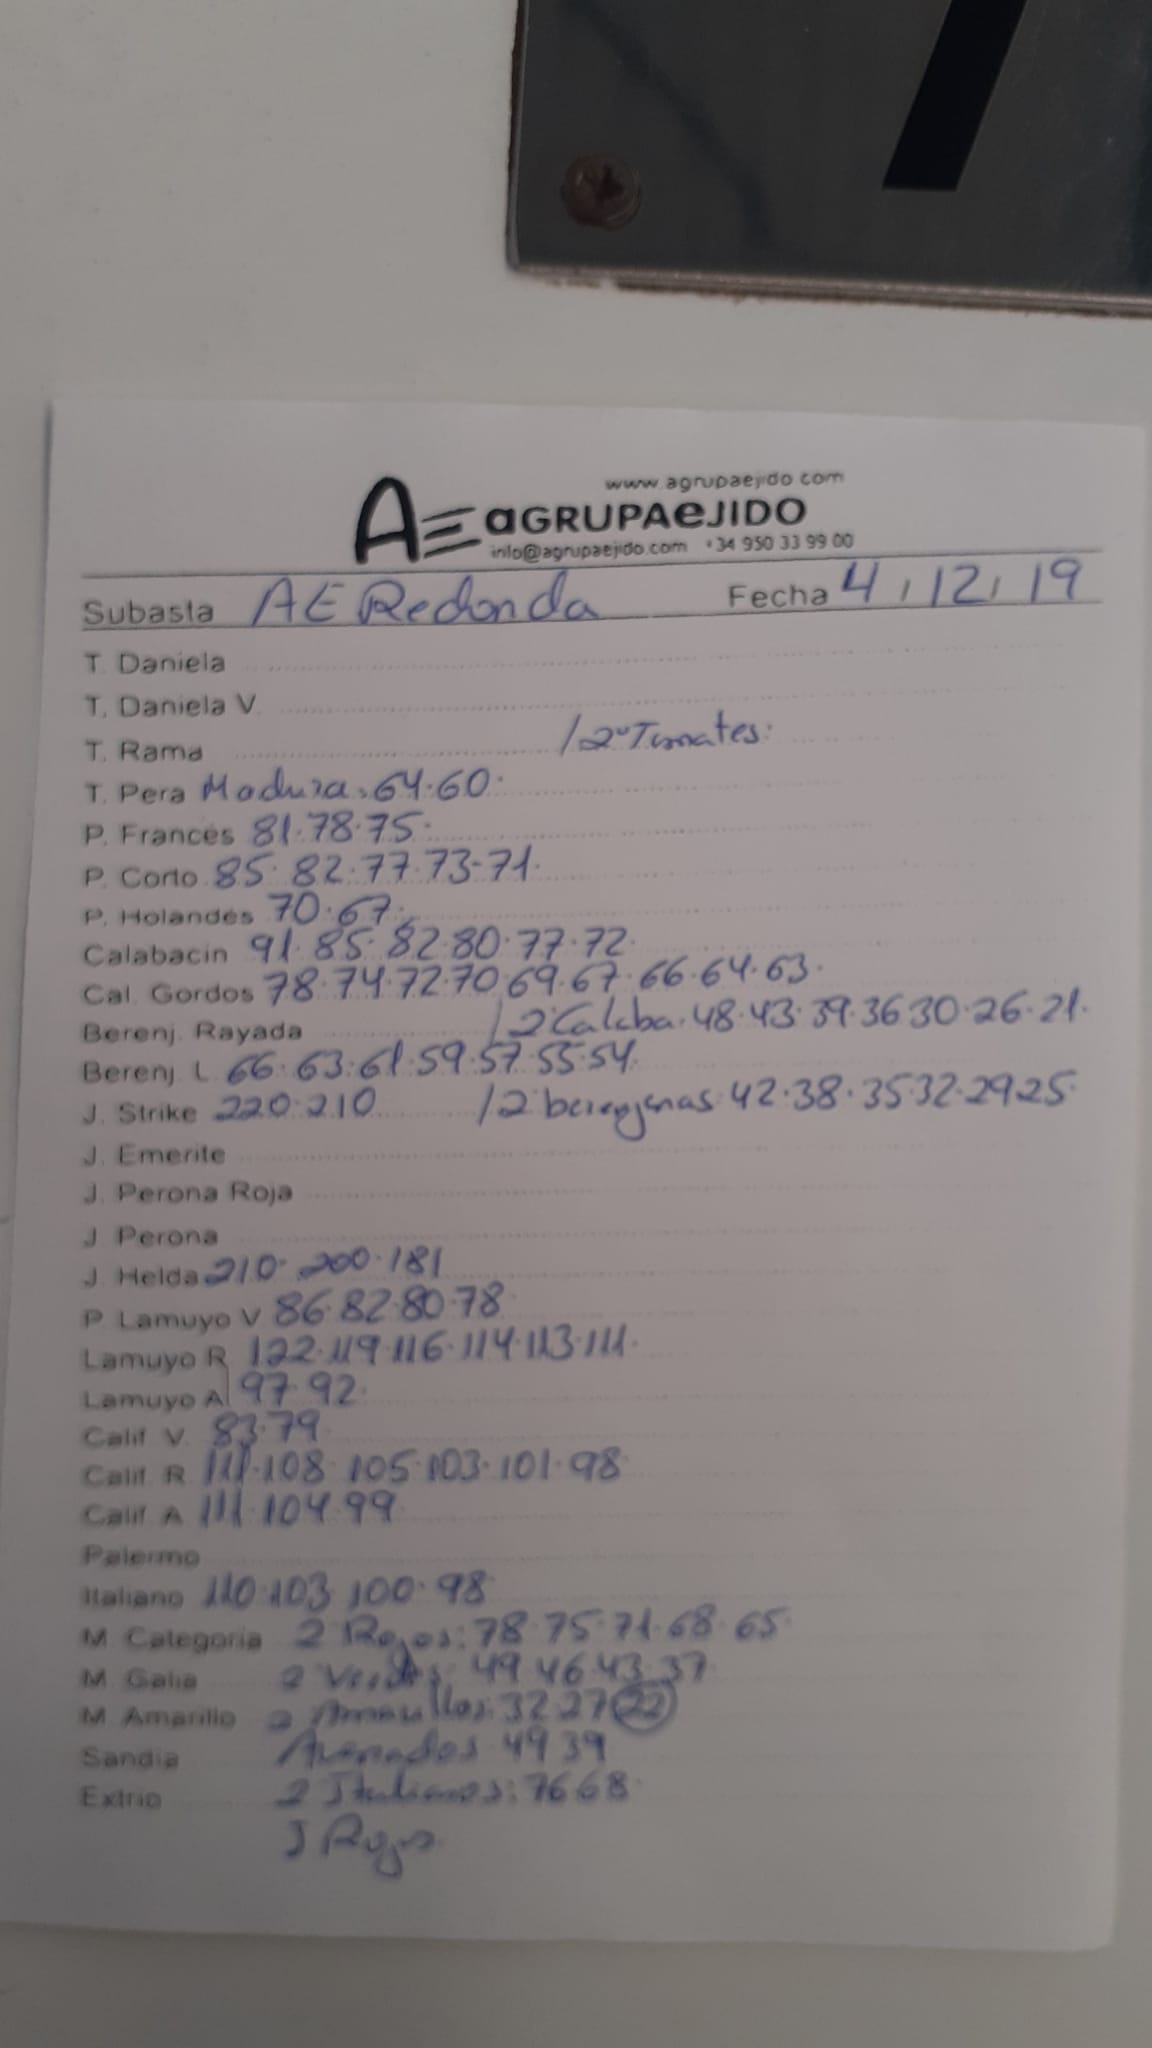 www.agrupaejido.com
AE aGRUPAeJIDO
info@agrupaejido.com +34 950 33 99 00
Subasta AE Redonda Fecha 4/12/19
T. Daniela
T. Daniela V.
T. Rama /2ª Tomates:
T. Pera Madura. 64.60.
P. Francés 81.78.75.
P. Corto 85.82.77.73-71.
P. Holandés 70.67.
Calabacin 91.85.82.80.77.72.
Cal. Gordos 78.74.72.70.69.67.66.64.63.
Berenj. Rayada /2 Calaba. 48.43.39.36 30.26.21.
Berenj. L. 66.63.61.59.57.55.54.
J. Strike 220.210 /2 berenjenas: 42.38.35 32.29 25.
J. Emerite
J. Perona Roja
J. Perona
J. Helda 210.200.181
P. Lamuyo V 86.82.80.78
Lamuyo R. 122.119.116.114.113.111.
Lamuyo A 97.92.
Calif. V. 83.79.
Calif. R. 111.108 105.103.101.98
Calif. A 111.104.99
Palermo
Italiano 110.103 100.98
M. Categoria 2 Rojos: 78.75.71.68.65.
M. Galia 2 Verdes: 49 46.43.37.
M. Amarillo 2 Amarillos: 32.27 22
Sandia 49 39
Extrio 2 Italianos: 76 68.
J Rojo.